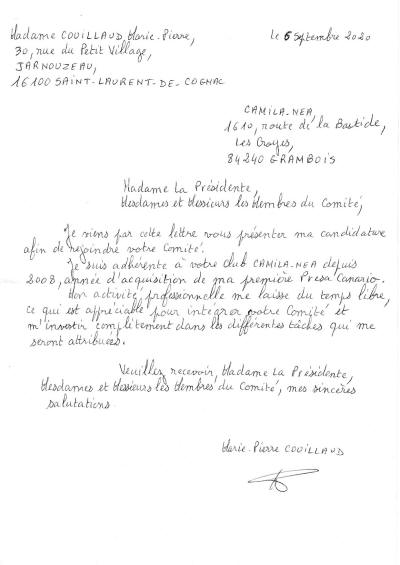 Madame COUILLAUD, Marie-Pierre,
30, rue du Petit Village,
JARNOUZEAU,
16100 SAINT-LAURENT-DE-COGNAC
Le 6 Septembre 2020
CAMILA-NEA,
1610, route de la Bastide,
Les Groyes,
84240 GRAMBOIS
Madame La Présidente,
Mesdames et Messieurs les Membres du Comité,
Je viens par cette lettre vous présenter ma candidature
afin de rejoindre votre Comité.
Je suis adhérente à votre club CAMILA-NEA depuis
2008, année d'acquisition de ma première Presa Canario.
Mon activité professionnelle me laisse du temps libre,
ce qui est appréciable pour intégrer votre Comité et
m'investir complètement dans les différentes tâches qui me
seront attribuées.
Veuillez recevoir, Madame La Présidente,
Mesdames et Messieurs les Membres du Comité, mes sincères
salutations.
Marie-Pierre COUILLAUD